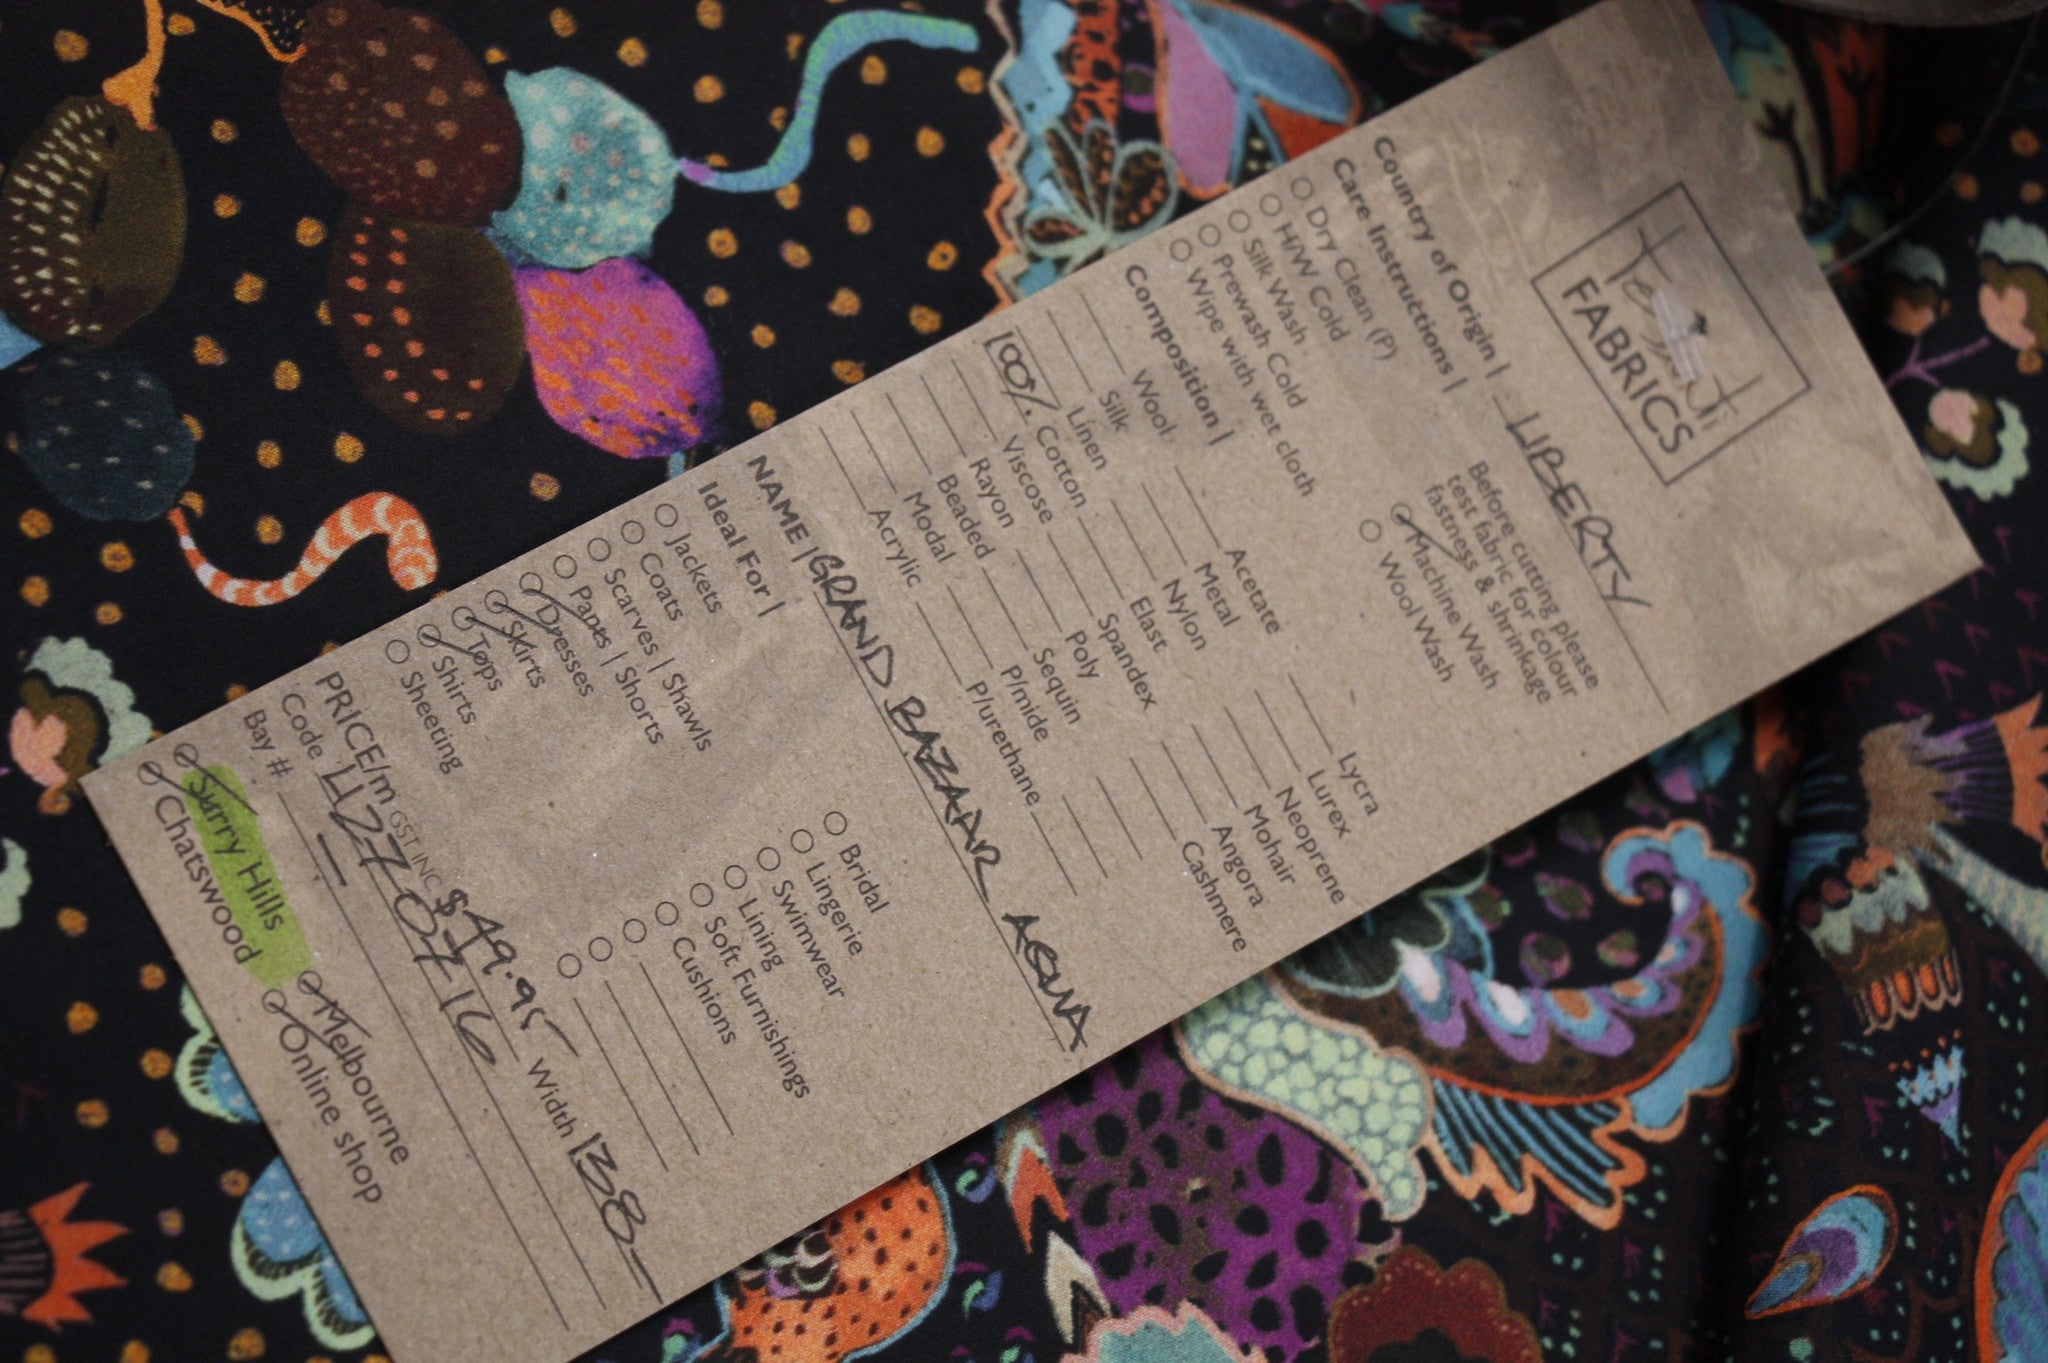 Tessuti
FABRICS
Country of Origin | LIBERTY
Care Instructions |
Before cutting please
test fabric for colour
fastness & shrinkage
Dry Clean (P)
Machine Wash
H/W Cold
Wool Wash
Silk Wash
Prewash Cold
Wipe with wet cloth
Composition |
Wool Acetate Lycra
Silk Metal Lurex
Linen Nylon Neoprene
100% Cotton Elast Mohair
Viscose Spandex Angora
Rayon Poly Cashmere
Beaded Sequin
Modal P/mide
Acrylic P/urethane
NAME | GRAND BAZAAR AQUA
Ideal For |
Jackets Bridal
Coats Lingerie
Scarves | Shawls Swimwear
Pants | Shorts Lining
Dresses Soft Furnishings
Skirts Cushions
Tops
Shirts
Sheeting
PRICE/m GST INC $49.95 Width 138
Code
Bay #
Surry Hills Melbourne
Chatswood Online shop